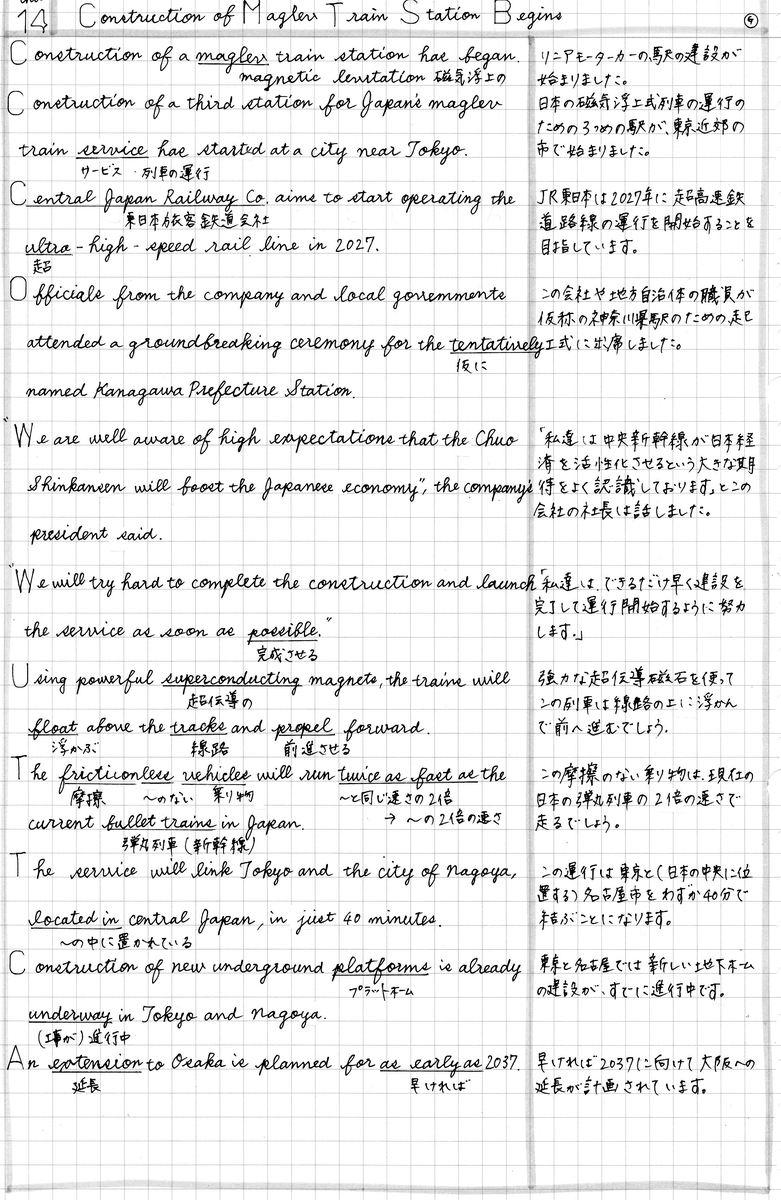 14 Construction of Maglev Train Station Begins
④
Construction of a maglev train station has began.
magnetic levitation 磁気浮上の
Construction of a third station for Japan's maglev
train service has started at a city near Tokyo.
サービス・列車の運行
Central Japan Railway Co. aims to start operating the
東日本旅客鉄道会社
ultra-high-speed rail line in 2027.
超
Officials from the company and local governments
attended a groundbreaking ceremony for the tentatively
仮に
named Kanagawa Prefecture Station.
"We are well aware of high expectations that the Chuo
Shinkansen will boost the Japanese economy", the company's
president said.
"We will try hard to complete the construction and launch
the service as soon as possible."
完成させる
Using powerful superconducting magnets, the trains will
超伝導の
float above the tracks and propel forward.
浮かぶ 線路 前進させる
The frictionless vehicles will run twice as fast as the
摩擦 〜のない 乗り物 〜と同じ速さの2倍
current bullet trains in Japan.
→ 〜の2倍の速さ
弾丸列車(新幹線)
The service will link Tokyo and the city of Nagoya,
located in central Japan, in just 40 minutes.
〜の中に置かれている
Construction of new underground platforms is already
プラットホーム
underway in Tokyo and Nagoya.
(工事が)進行中
An extension to Osaka is planned for as early as 2037.
延長 早ければ
リニアモーターカーの駅の建設が
始まりました。
日本の磁気浮上式列車の運行の
ための3つめの駅が、東京近郊の
市で始まりました。
JR東日本は2027年に超高速鉄
道路線の運行を開始することを
目指しています。
この会社や地方自治体の職員が
仮称の神奈川県駅のための起
工式に出席しました。
「私達は中央新幹線が日本経
済を活性化させるという大きな期
待をよく認識しております」とこの
会社の社長は話しました。
「私達は、できるだけ早く建設を
完了して運行開始するように努力
します。」
強力な超伝導磁石を使って
この列車は線路の上に浮かん
で前へ進むでしょう。
この摩擦のない乗り物は、現在の
日本の弾丸列車の2倍の速さで
走るでしょう。
この運行は東京と(日本の中央に位
置する)名古屋市をわずか40分で
結ぶことになります。
東京と名古屋では新しい地下ホーム
の建設が、すでに進行中です。
早ければ2037に向けて大阪への
延長が計画されています。